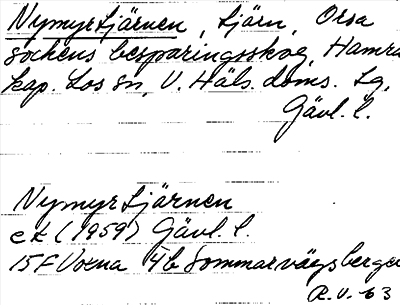 Nymyrtjärnen, tjärn, Orsa
sockens besparingsskog, Hamra
kap. Los sn, V. Häls. doms. sg,
Gävl. l.
Nymyrtjärnen
ek (1959) Gävl. l.
15F Voxna 4b Sommarvägsberget
R.V. 63